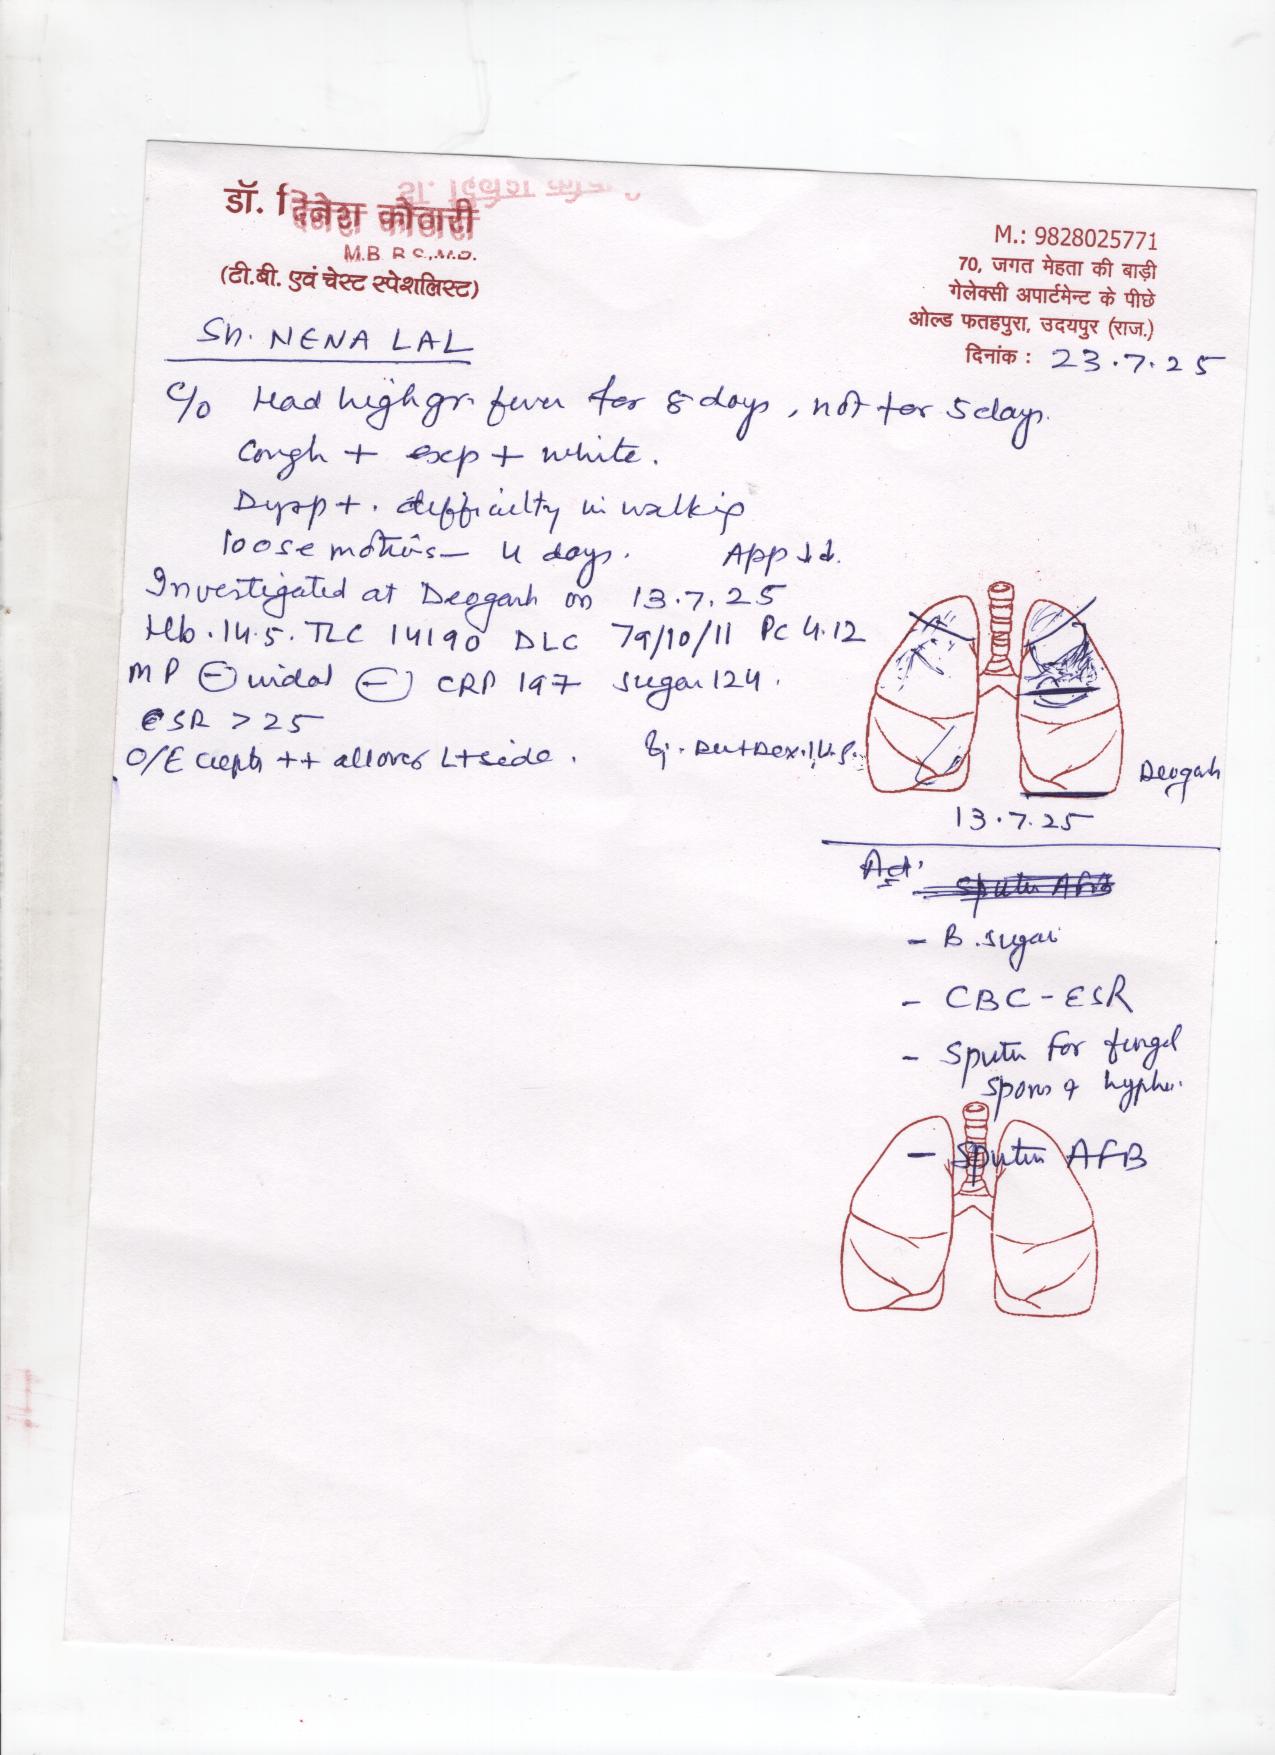 डॉ. दिनेश कोठारी
M.B.B.S., M.D.
(टी.बी. एवं चेस्ट स्पेशलिस्ट)
M.: 9828025771
70, जगत मेहता की बाड़ी
गेलेक्सी अपार्टमेन्ट के पीछे
ओल्ड फतहपुरा, उदयपुर (राज.)
दिनांक : 23.7.25
Sh. NENA LAL
C/o Had high gr. fever for 8 days, not for 5 days.
Cough + exp + white.
Dysp +. difficulty in walking
loose motions - 4 days. App ↓↓.
Investigated at Deogarh on 13.7.25
Hb. 14.5. TLC 14190 DLC 79/10/11 PC 4.12
MP ⊖ widal ⊖ CRP 197 sugar 124.
ESR > 25
O/E crepts ++ all over Lt side.
Deogarh
13.7.25
Ad:
- B. sugar
- CBC - ESR
- Sputum for fungal
spores & hyphae.
- Sputum AFB